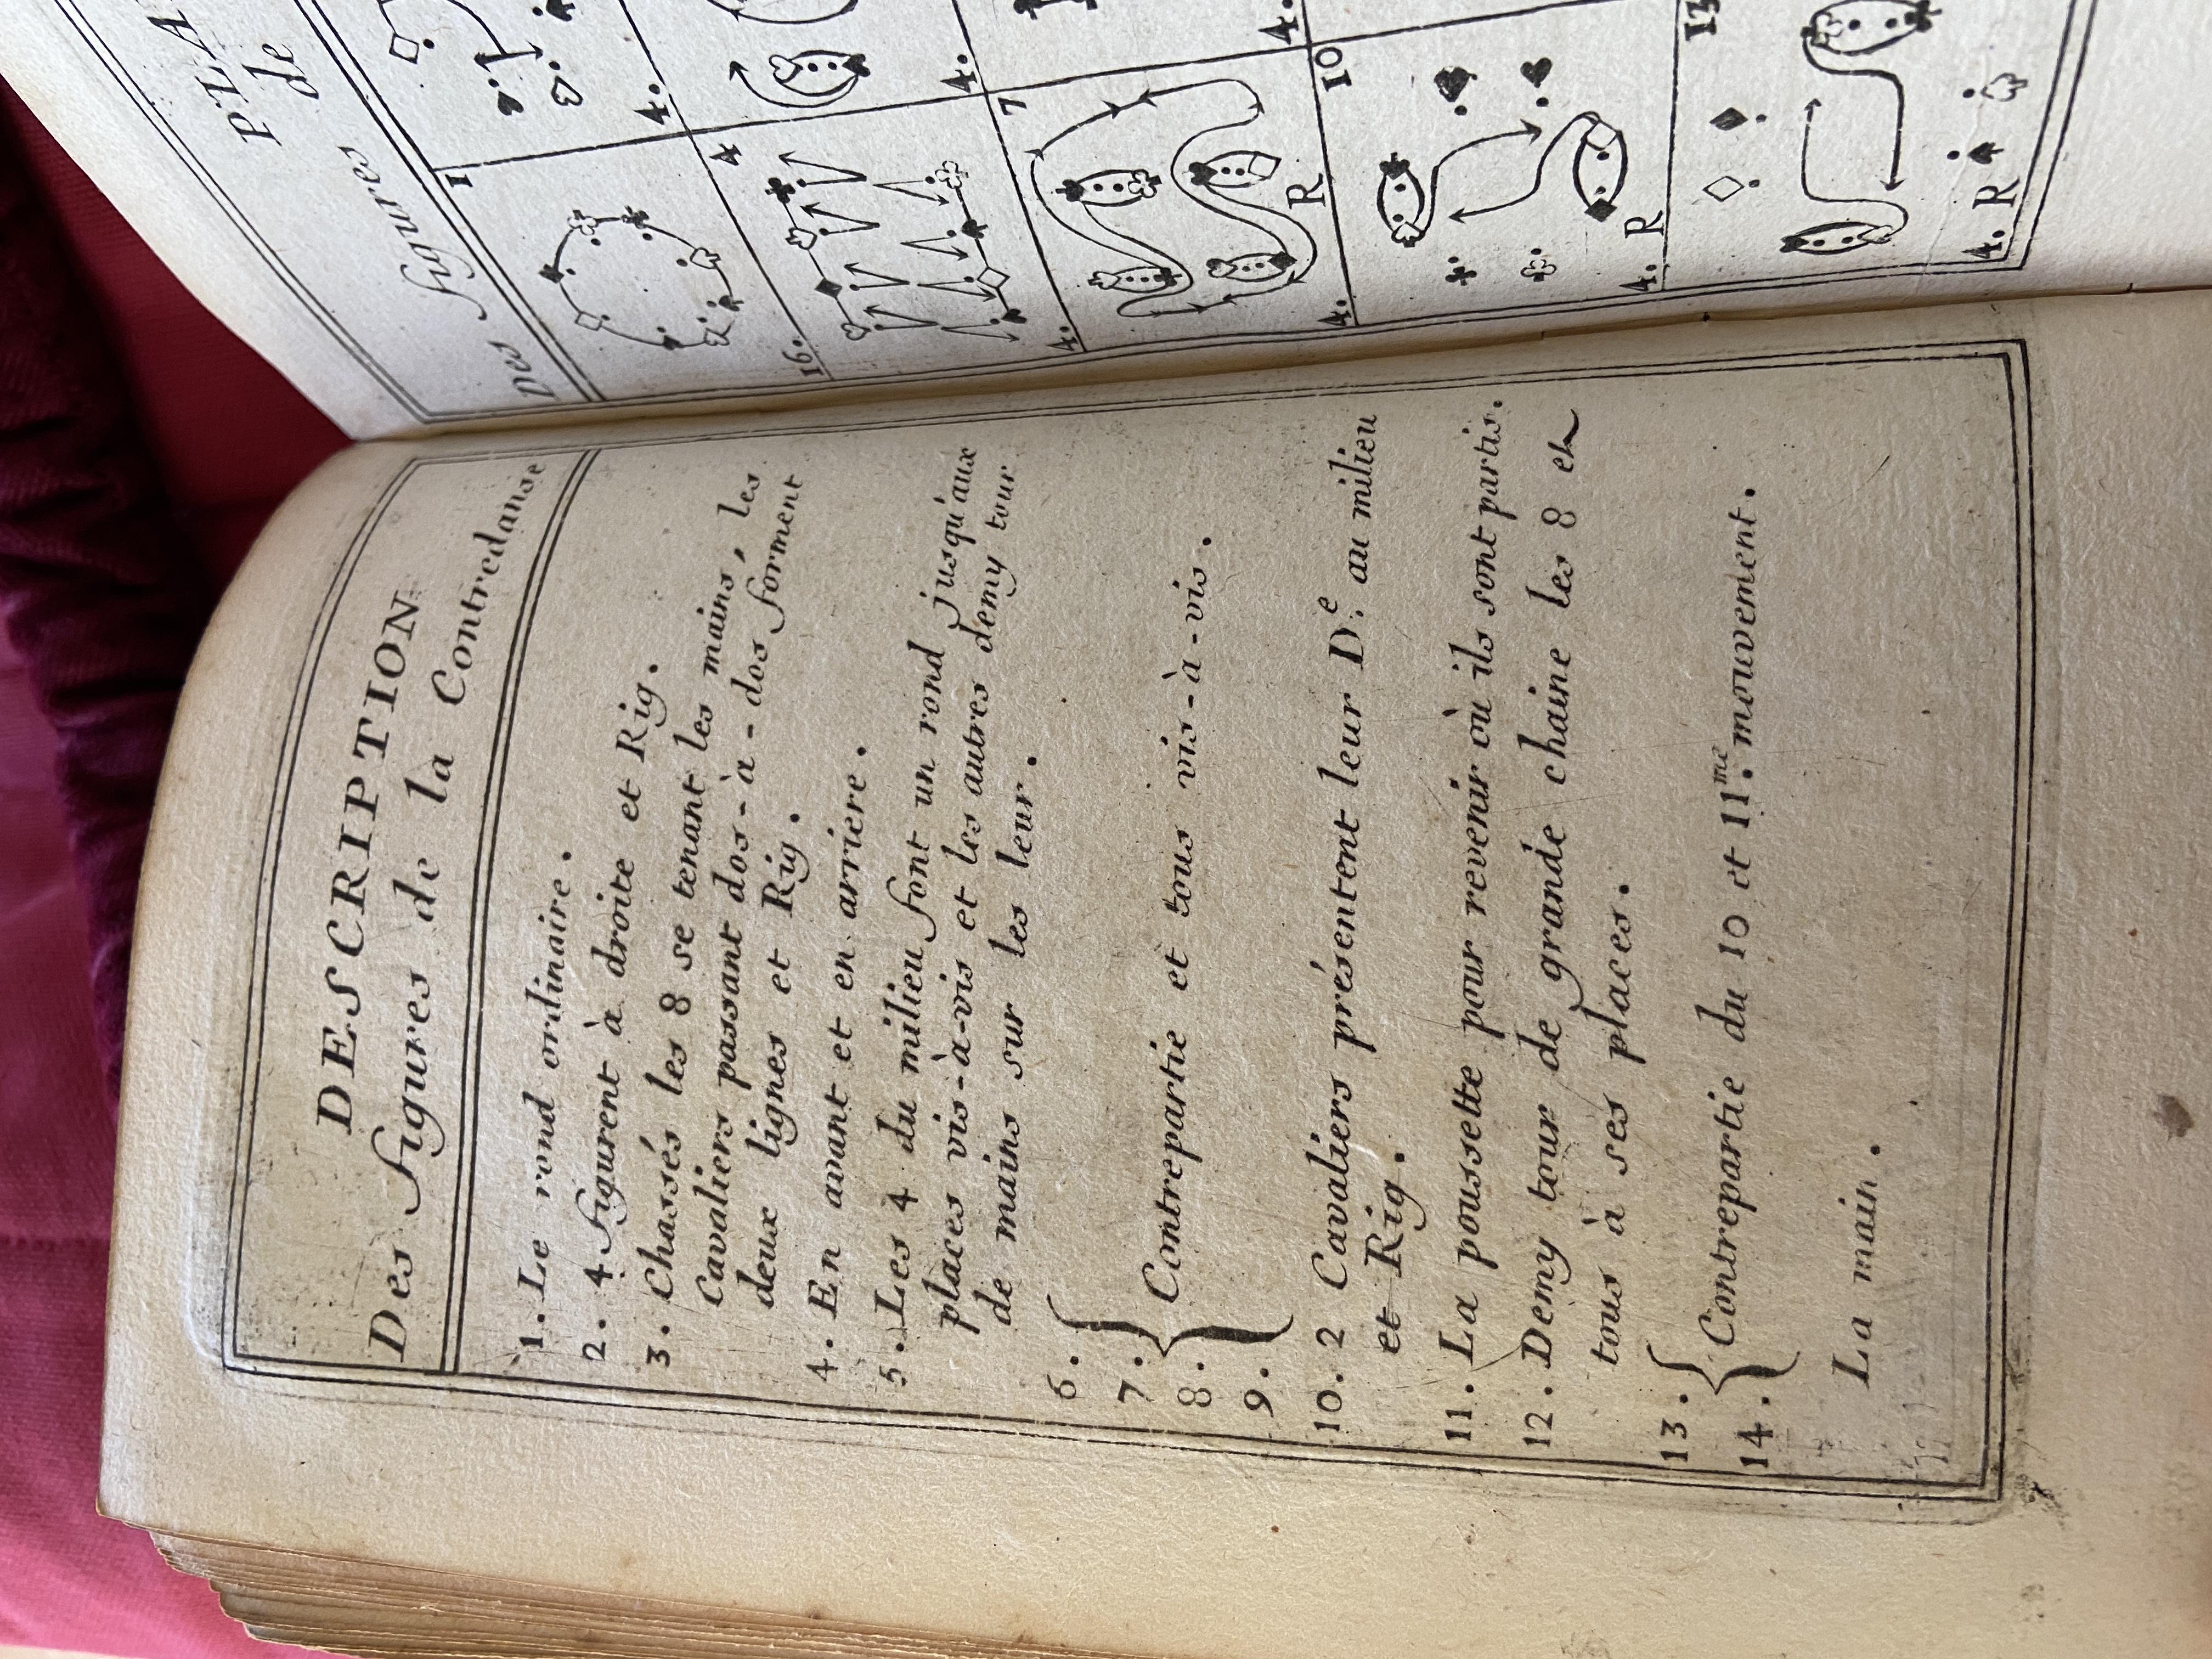 DESCRIPTION
Des figures de la Contredanse
1. Le rond ordinaire.
2. 4 figurent à droite et Rig.
3. Chassés les 8 se tenant les mains, les
Cavaliers passant dos-à-dos forment
deux lignes et Rig.
4. En avant et en arriere.
5. Les 4 du milieu font un rond jusqu'aux
places vis-à-vis et les autres demy tour
de mains sur les leur.
6.
7.
Contrepartie et tous vis-à-vis.
8.
9.
10. 2 Cavaliers présentent leur D.e au milieu
et Rig.
11. La poussette pour revenir où ils sont partis.
12. Demy tour de grande chaine les 8 et
tous à ses places.
13.
Contrepartie du 10 et 11.me mouvement.
14.
La main.
de
Des figures
1
16.
4.
4
4.
4.
7
4.
R
4.
10
4.
R
13
4.
R